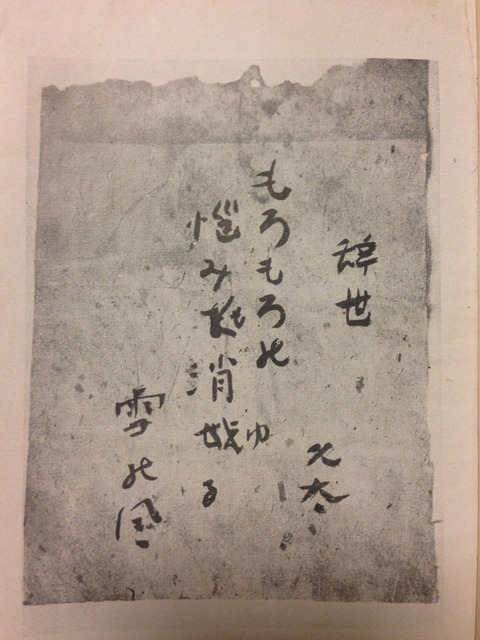 辞世
久太
もろもろの
悩みも消ゆる
雪の風